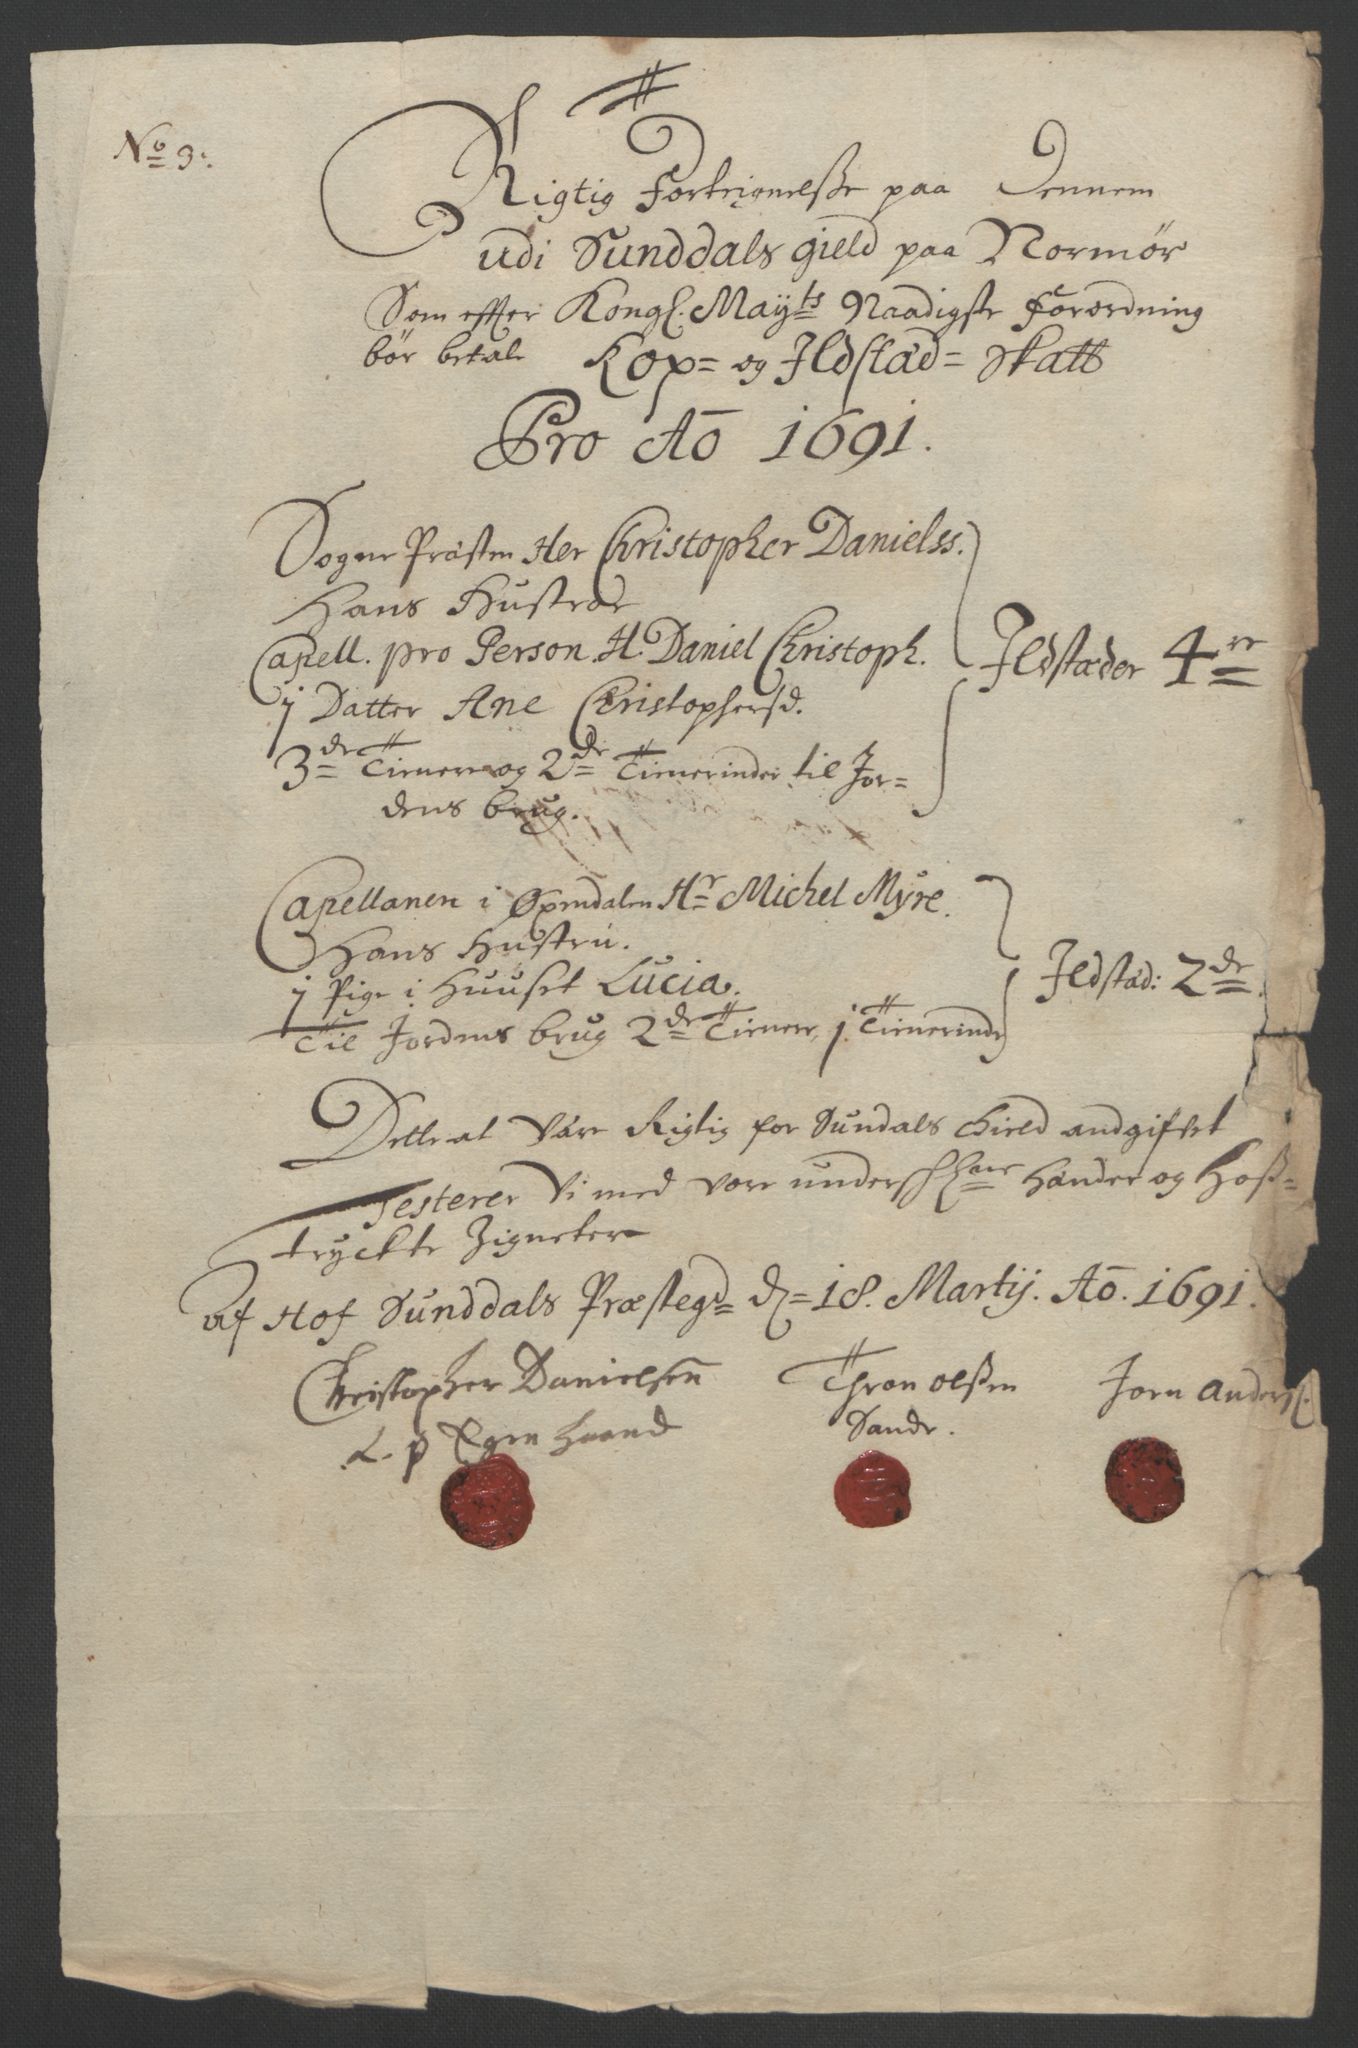 No 9:
Rigtig Forteignelsse paa Dennem
udi Sunddals gield paa Normør
Som efter Kongl. Mayts Naadigste Forordning
bør betale Kop= og Ildstad= Skatt
Pro Ao 1691.
Sogne Præsten Her Christopher Danielss.
Hans Hustroe
Capell. pro Person H. Daniel Christoph. Ildstæder 4re
1 Datter Ane Christophersd.
3de Tienere og 2de Tienerinder til Jor=
dens brug.
Capellanen i Øxendalen Hr Michel Myre.
Hans Hustru.
1 Pige i Huuset Lucia. Ildstæd: 2de
Til Jordens brug 2de Tienere, 1 Tienerinde
Dette at være Rigtig for Sundals Gield andgifvet
Testerer Vi med vore underschrefne Hænder og Hoss=
tryckte Zigneter
Af Hof Sunddals Præstegd d= 18. Martij. Ao. 1691.
Christopher Danielsen Thron olssen Joen Anders
Egen haand Sande.